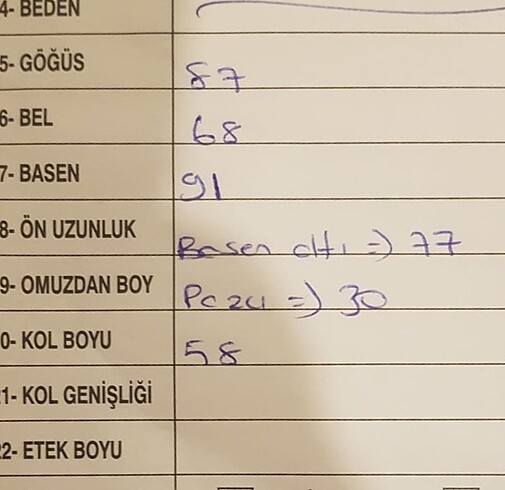 4- BEDEN
5- GÖĞÜS 87
6- BEL 68
7- BASEN 91
8- ÖN UZUNLUK Basen altı => 77
9- OMUZDAN BOY Pazu => 30
0- KOL BOYU 58
1- KOL GENİŞLİĞİ
22- ETEK BOYU